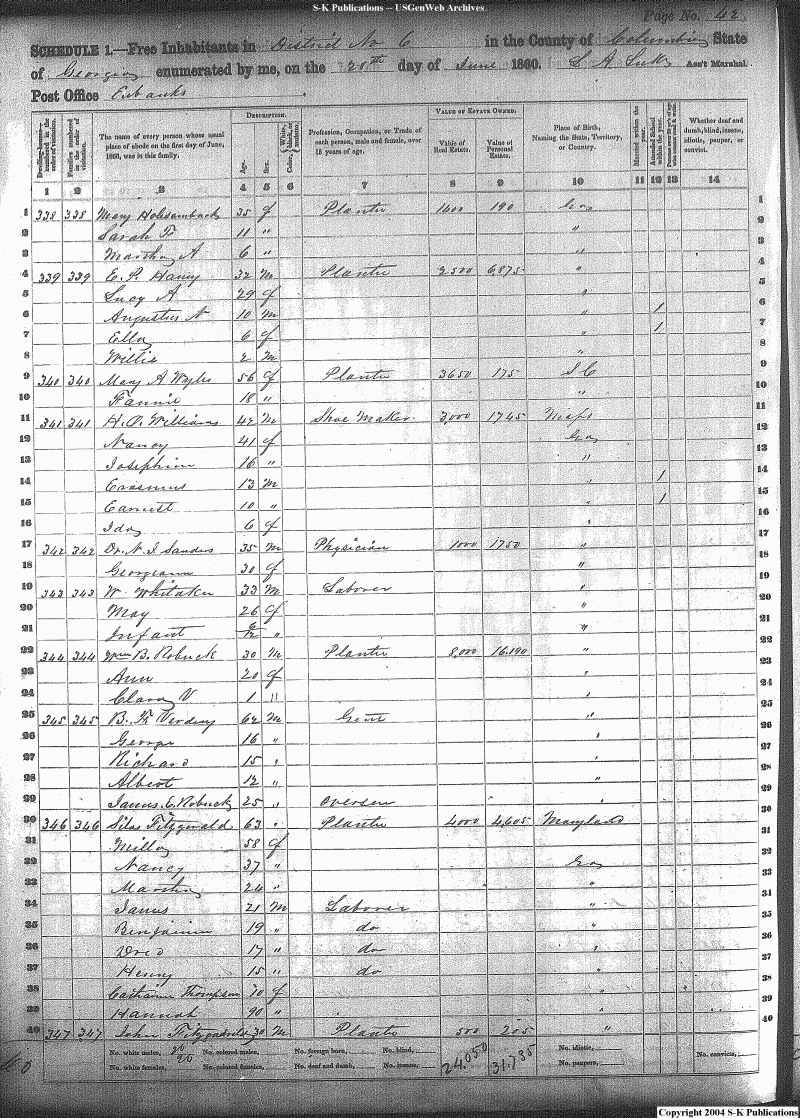 S-K Publications -- USGenWeb Archives
Page No. 42
SCHEDULE 1.—Free Inhabitants in District No 6 in the County of Columbia State
of Georgia enumerated by me, on the 20th day of June 1860. Ass't Marshal.
Post Office Eubanks
DESCRIPTION. VALUE OF ESTATE OWNED.
Dwelling-houses—numbered in the order of visitation. Families numbered in the order of visitation. The name of every person whose usual place of abode on the first day of June, 1860, was in this family. Age. Sex. Color, {White, black, or mulatto. Profession, Occupation, or Trade of each person, male and female, over 15 years of age. Value of Real Estate. Value of Personal Estate. Place of Birth, Naming the State, Territory, or Country. Married within the year. Attended School within the year. Persons over 20 y'rs of age who cannot read & write. Whether deaf and dumb, blind, insane, idiotic, pauper, or convict.
1 2 3 4 5 6 7 8 9 10 11 12 13 14
1 338 338 Mary 35 f Planter 1400 190 Geo 1
2 Sarah F 11 " " 2
3 Martha A 6 " " 3
4 339 339 E. P. 32 M Planter 2500 6,875 " 4
5 Lucy A 29 f " 5
6 Augustus N 10 M " 1 6
7 Ella 6 f " 1 7
8 Willis 2 M " 8
9 340 340 Mary A 56 f Planter 3650 175 S C 9
10 Fannie 18 " " 10
11 341 341 H. P. Williams 42 M Shoe Maker 3,000 1745 Mass 11
12 Nancy 41 f Geo 12
13 Josephine 16 " " 13
14 Erasmus 13 M " 1 14
15 10 " " 1 15
16 Ida 6 f " 16
17 342 342 Dr. N. J. Sanders 35 M Physician 1000 1750 " 17
18 Georgiana 30 f " 18
19 343 343 W. Whitaker 33 M Laborer " 19
20 May 26 f " 20
21 Infant 6/12 " " 21
22 344 344 Wm B. Robuck 30 M Planter 8,000 16,190 " 22
23 Ann 20 f " 23
24 Clara V 1 " " 24
25 345 345 B. F. Verdery 62 M Gent " 25
26 George 16 " " 26
27 Richard 15 " " 27
28 Albert 12 " " 28
29 James. C. Robuck 25 " Overseer " 29
30 346 346 Silas Fitzgerald 63 " Planter 4000 4,605 Maryland 30
31 Milly 58 f 31
32 Nancy 37 " Geo 32
33 Martha 24 " " 33
34 James 21 M Laborer " 34
35 Benjamin 19 " do " 35
36 17 " do " 36
37 Henry 15 " do " 37
38 Catharine Thompson 70 f " 38
39 Hannah 90 " " 39
40 347 347 John Fitzgerald 30 M Planter 500 205 " 40
No. white males, 20 No. colored males, No. foreign born, No. blind, 24,050 31,735 No. idiotic, No. convicts,
No. white females, 20 No. colored females, No. deaf and dumb, No. insane, No. paupers,
Copyright 2004 S-K Publications